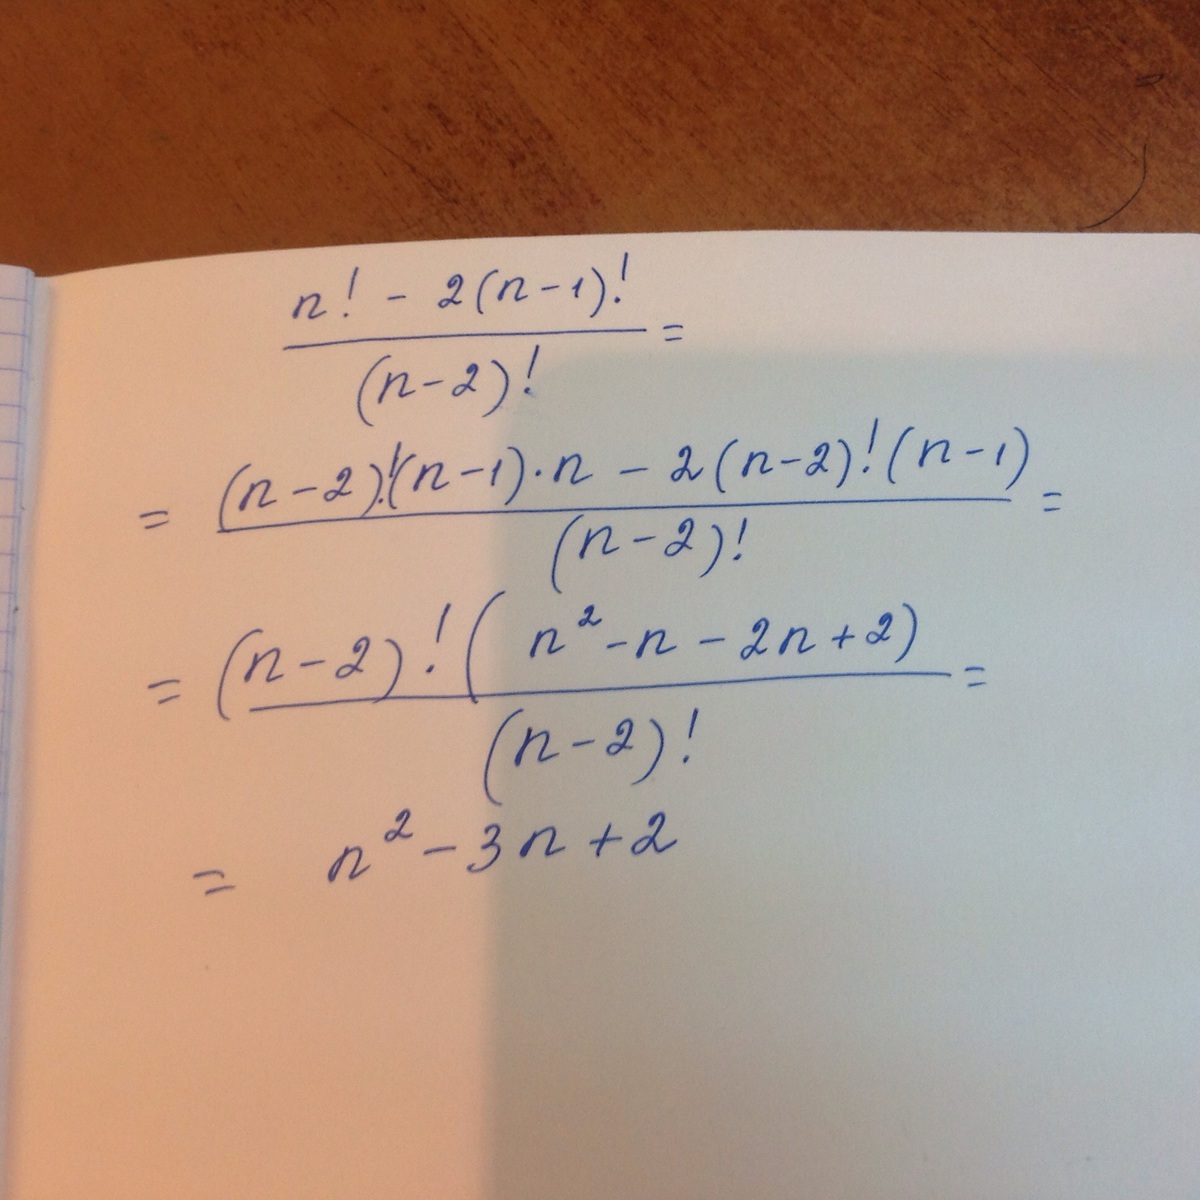 n! - 2(n-1)!
(n-2)! =
= (n-2)!(n-1)·n - 2(n-2)!(n-1)
(n-2)! =
= (n-2)!(n²-n-2n+2)
(n-2)! =
= n²-3n+2